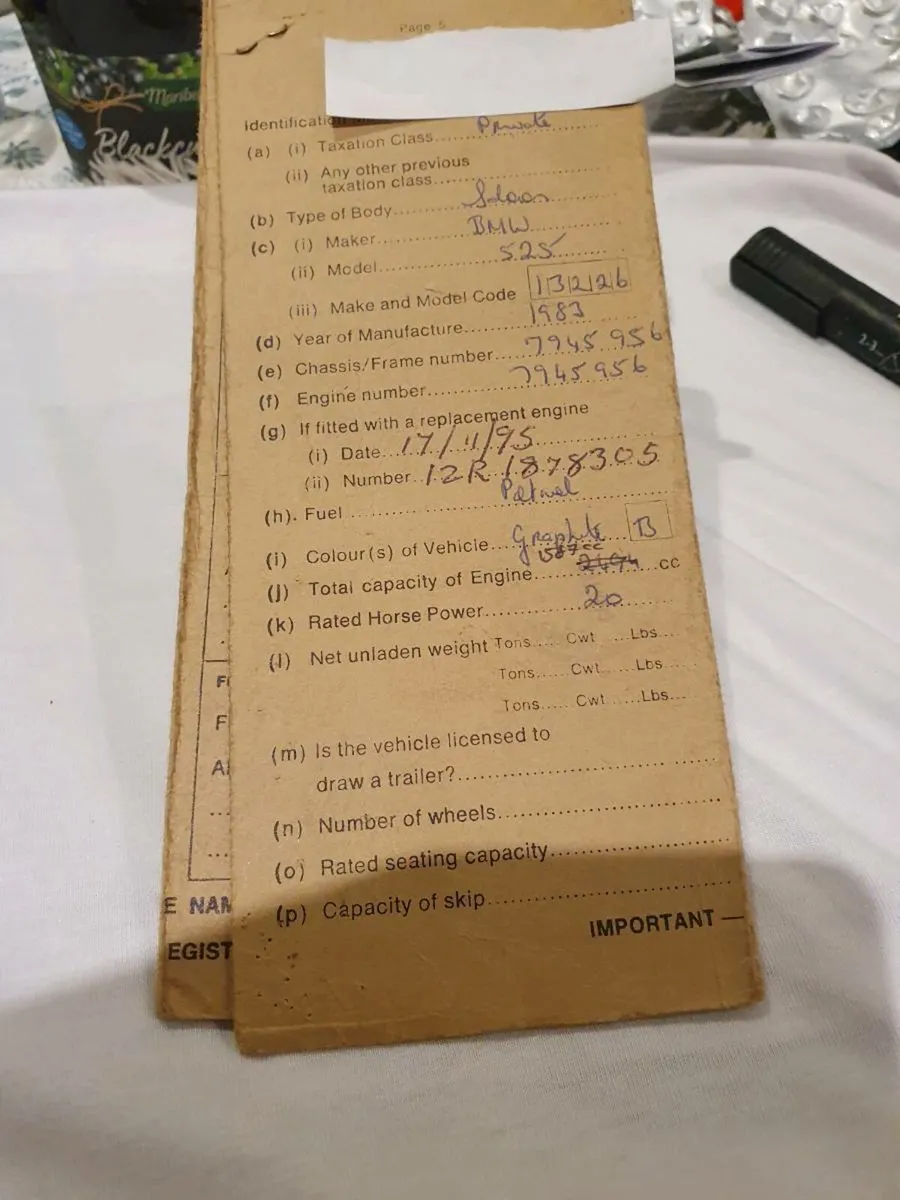 Page 5
Identification
(a) (i) Taxation Class..... Private
(ii) Any other previous
taxation class.....
(b) Type of Body..... Saloon
(c) (i) Maker..... BMW
(ii) Model..... 525
(iii) Make and Model Code 13226
(d) Year of Manufacture..... 1983
(e) Chassis/Frame number..... 7945956
(f) Engine number..... 7945956
(g) If fitted with a replacement engine
(i) Date... 17/11/95
(ii) Number.. 12R 1878305
(h). Fuel ..... Petrol
(i) Colour(s) of Vehicle.... Graphite B
1587cc
(j) Total capacity of Engine..... 2494 cc
(k) Rated Horse Power..... 20
(l) Net unladen weight Tons..... Cwt .....Lbs....
Tons..... Cwt .....Lbs....
Tons..... Cwt .....Lbs...
(m) Is the vehicle licensed to
draw a trailer?.....
(n) Number of wheels.....
(o) Rated seating capacity.....
(p) Capacity of skip.....
IMPORTANT —
E NAM
EGIST
Blackcu